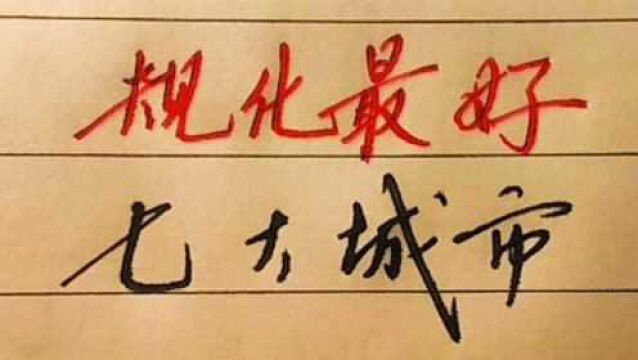 规化最好
七大城市